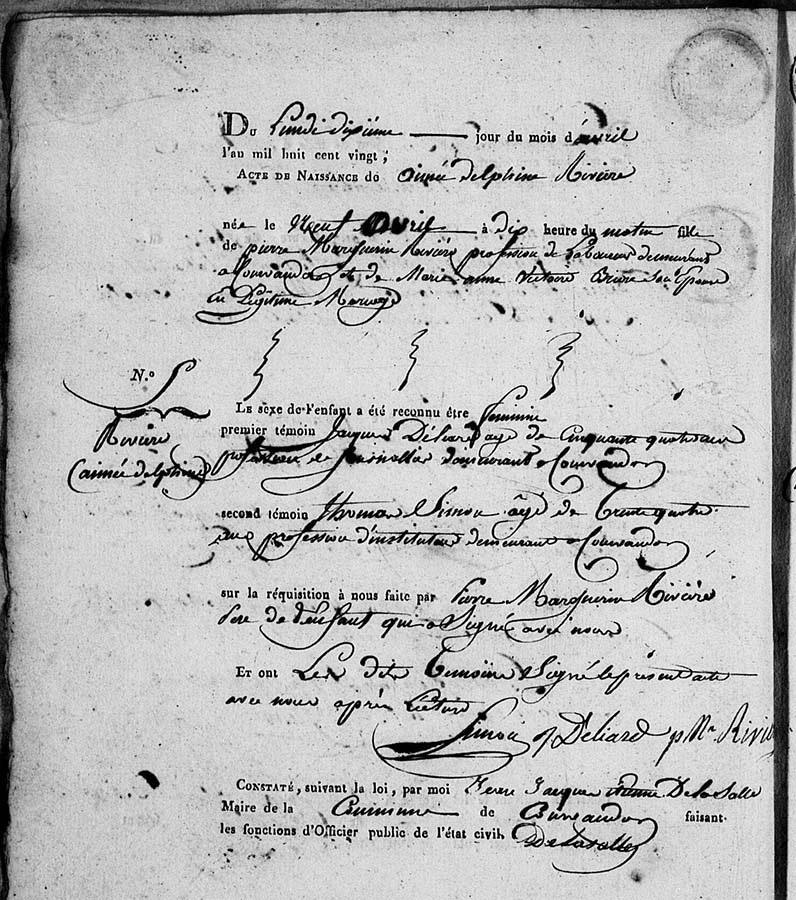 Du Lundi dixième jour du mois d'avril
l'an mil huit cent vingt;
Acte de Naissance de Aimée delphine Rivière
née le Neuf avril à dix heure du matin fille
de pierre Marguerin Rivière profession de Laboureur demeurant
a Courvaudon et de Marie anne Victoire Brion Son Epouse
En Légitime Mariage
N.º 5
Le sexe de l'enfant a été reconnu être feminine
Rivière
premier témoin Jacques Déliard agé de Cinquante quatre ans
(aimée delphine)
profession de Journallier demeurant a Courvaudon
second témoin Thomas Simon âgé de Trente quatre
ans profession d'instituteur demeurant a Courvaudon
sur la réquisition à nous faite par Pierre Marguerin Rivière
Pere de L'enfant qui a Signé avec nous
Et ont Les dits Temoins Signé le présent acte
avec nous après Lecture
Simon J Déliard p Mr Rivière
Constaté, suivant la loi, par moi Pierre Jacques Etienne De La Salle
Maire de la Commune de Courvaudon faisant
les fonctions d'Officier public de l'état civil.
De Lasalle